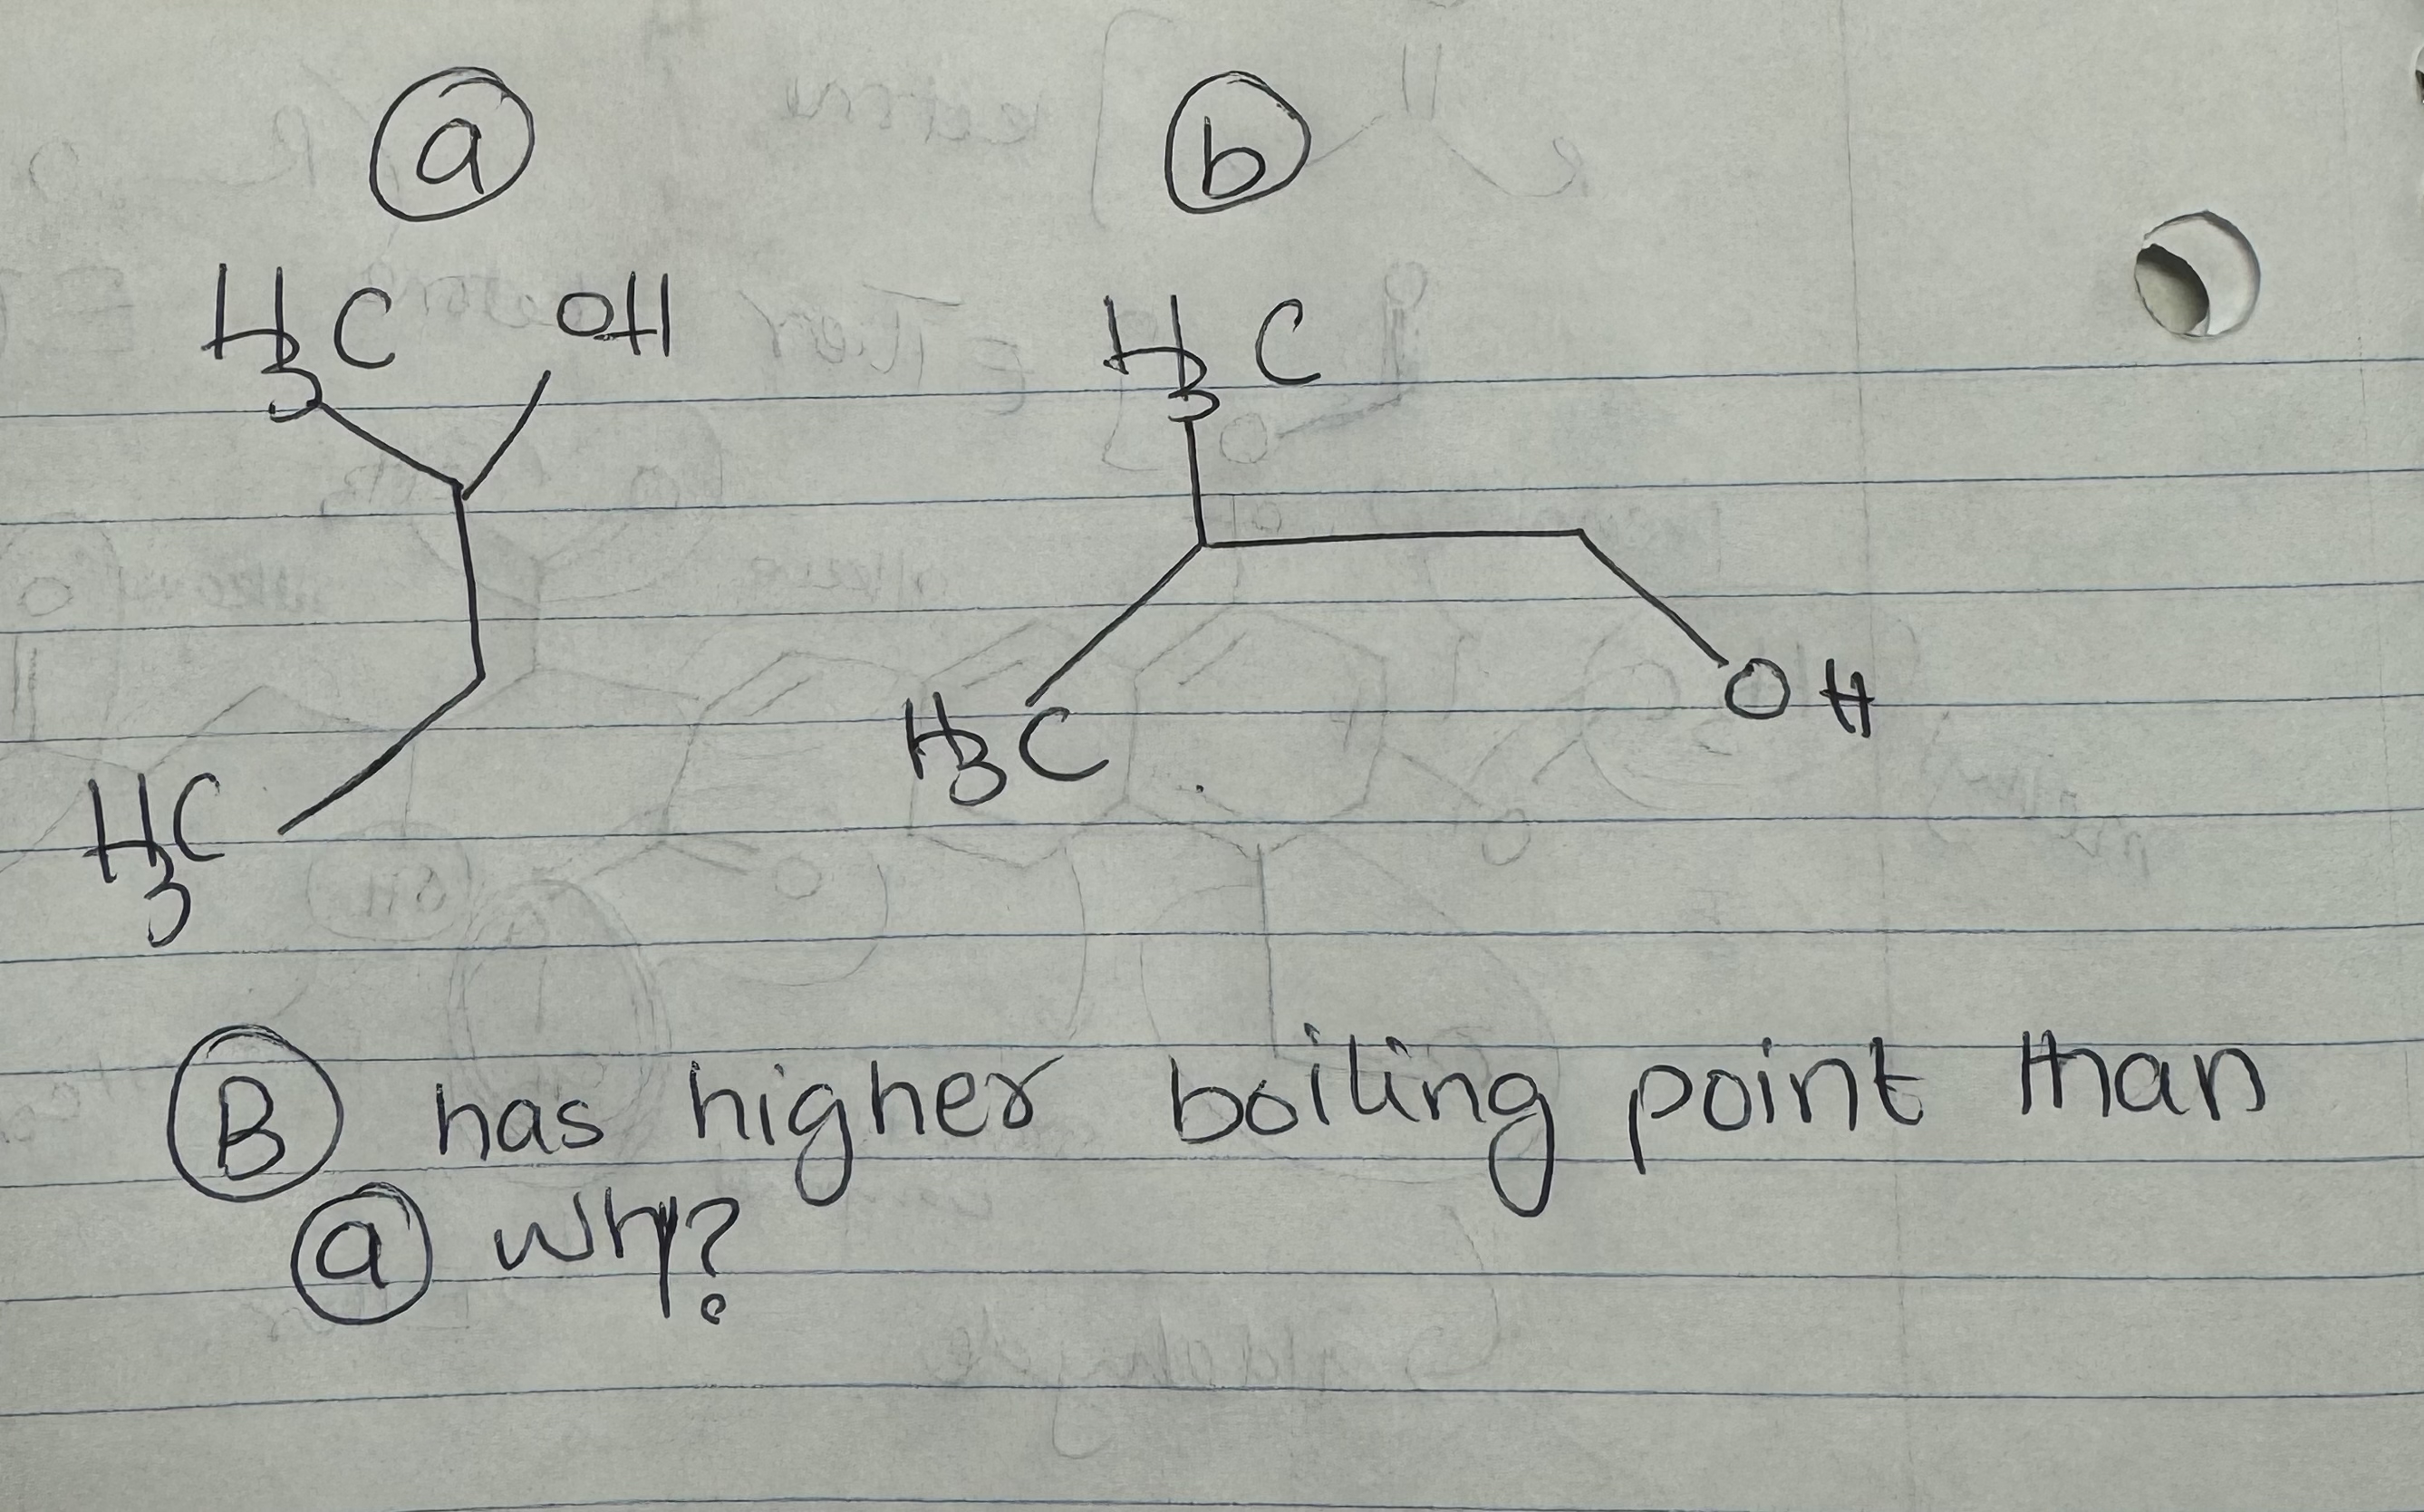 a b
H3C OH H3C
OH
H3C
H3C
B has higher boiling point than
a why?